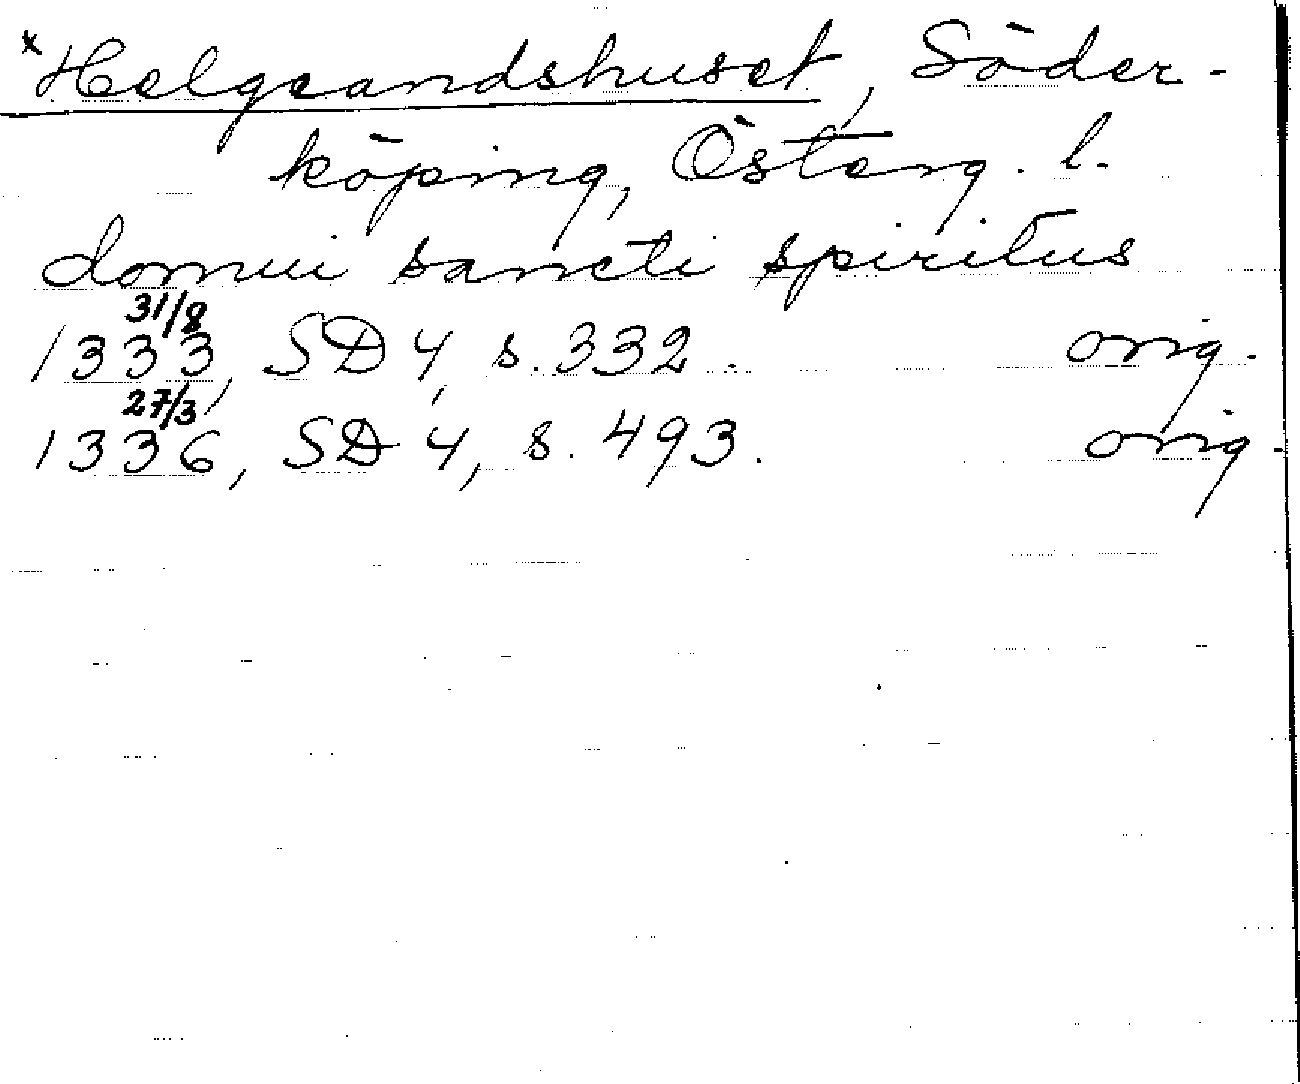 x Helgeandshuset, Söder-
köping, Österg. l.
domui sancti spiritus
31/8
1333, SD 4, s. 332. orig.
27/3
1336, SD 4, s. 493. orig.